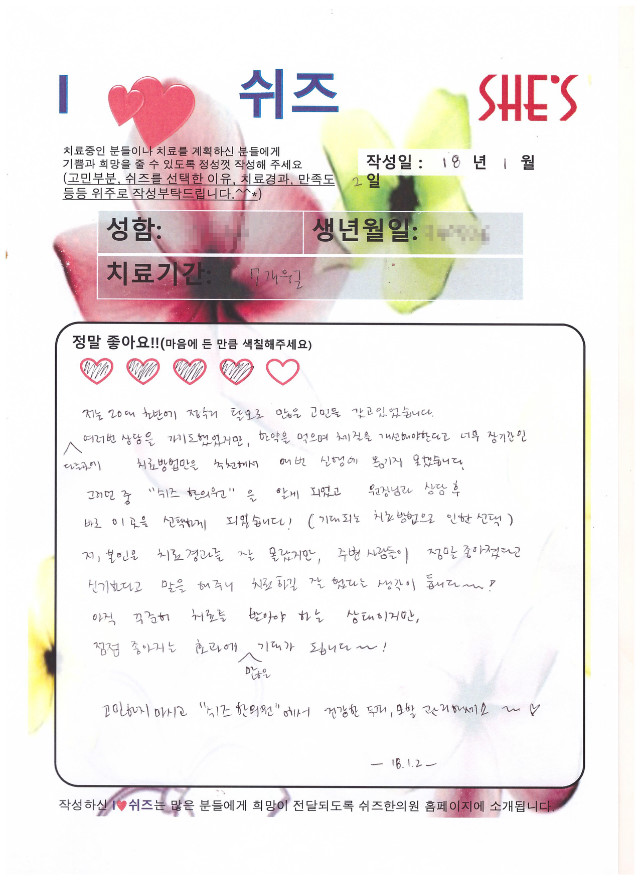 I ♥ 쉬즈
SHE'S
치료중인 분들이나 치료를 계획하신 분들에게
기쁨과 희망을 줄 수 있도록 정성껏 작성해 주세요
(고민부분, 쉬즈를 선택한 이유, 치료경과, 만족도
등등 위주로 작성부탁드립니다.^^*)
작성일 : 18 년 1 월
2 일
성함:
생년월일:
치료기간:
정말 좋아요!!(마음에 든 만큼 색칠해주세요)
저는 20대 초반에 정수리 탈모로 많은 고민을 갖고있었습니다.
여러번 상담을 가기도했었지만, 한약을 먹으며 체질을 개선해야한다고 너무 장기간인
다른곳에 치료방법만을 추천해서 매번 실행에 옮기지 못했습니다.
그러던 중 "쉬즈 한의원"을 알게 되었고 원장님과 상담 후
바로 이곳을 선택하게 되었습니다! (기대되는 치료방법으로 인한 선택)
저, 본인은 치료경과를 잘 몰랐지만, 주변 사람들이 정말 좋아졌다고
신기하다고 말을 해주니 치료하길 잘 했다는 생각이 듭니다~!
아직 꾸준히 치료를 받아야 하는 상태이지만,
점점 좋아지는 효과에 많은 기대가 됩니다~!
고민하지 마시고 "쉬즈 한의원"에서 건강한 두피, 모발 관리하세요 ~ ♡
- 18.1.2 -
작성하신 I♥쉬즈는 많은 분들에게 희망이 전달되도록 쉬즈한의원 홈페이지에 소개됩니다.